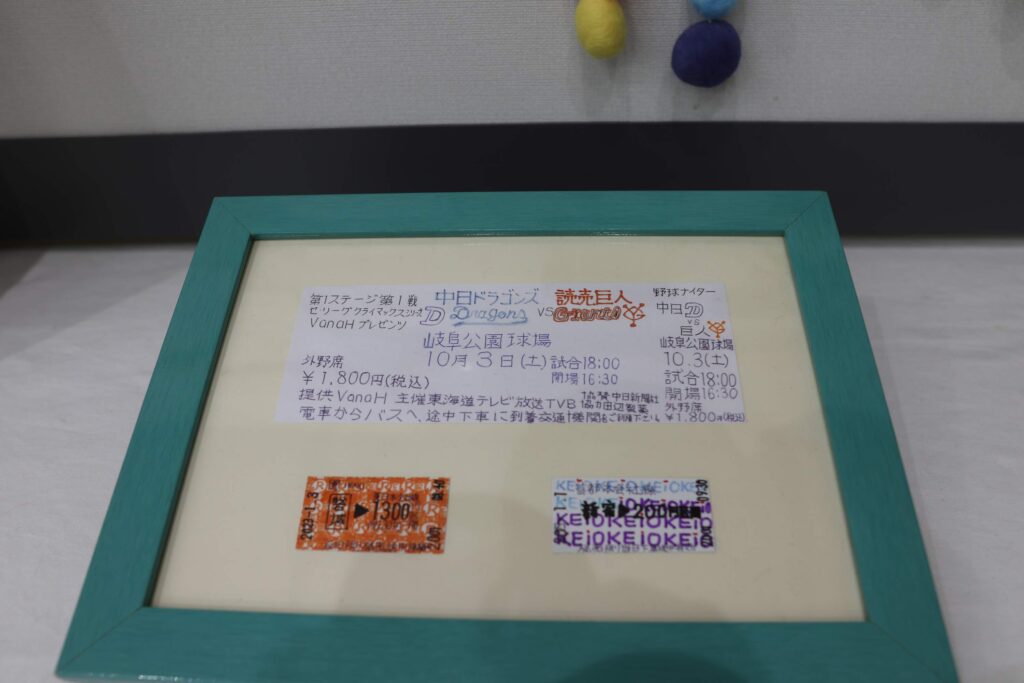 第1ステージ第1戦
セ・リーグクライマックスシリーズ
VanaHプレゼンツ
中日ドラゴンズ
D Dragons
VS
読売巨人
Giants
岐阜公園球場
10月3日(土)
試合18:00
開場16:30
外野席
￥1,800円(税込)
提供VanaH 主催東海テレビ放送TVB
協賛 中日新聞社
協力田辺製薬
電車からバスへ、途中下車に到着交通機関をご利用下さい
野球ナイター
中日D
VS
巨人
岐阜公園球場
10.3(土)
試合18:00
開場16:30
外野席
￥1,800円(税込)
2023-1.-3
▶1300
KEIO KEIO KEIO KEIO
KEIO KEIO KEIO KEIO
200円
09:30